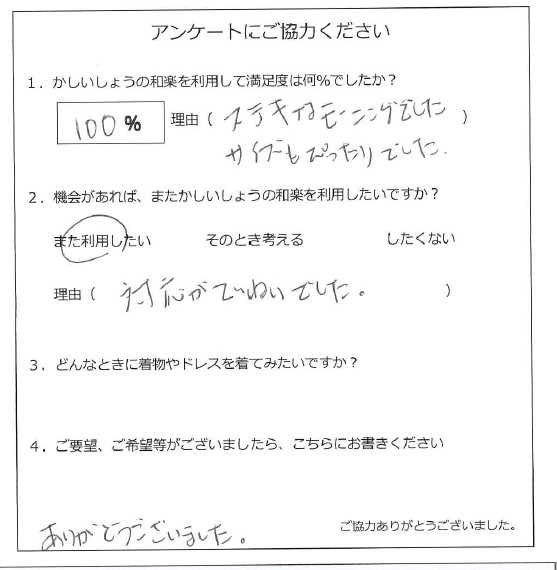 アンケートにご協力ください
1．かしいしょうの和楽を利用して満足度は何%でしたか？
100 % 理由（ ステキなモーニングでした ）
サイズもぴったりでした.
2．機会があれば、またかしいしょうの和楽を利用したいですか？
また利用したい そのとき考える したくない
理由（ 対応がていねいでした。 ）
3．どんなときに着物やドレスを着てみたいですか？
4．ご要望、ご希望等がございましたら、こちらにお書きください
ありがとうございました。 ご協力ありがとうございました。